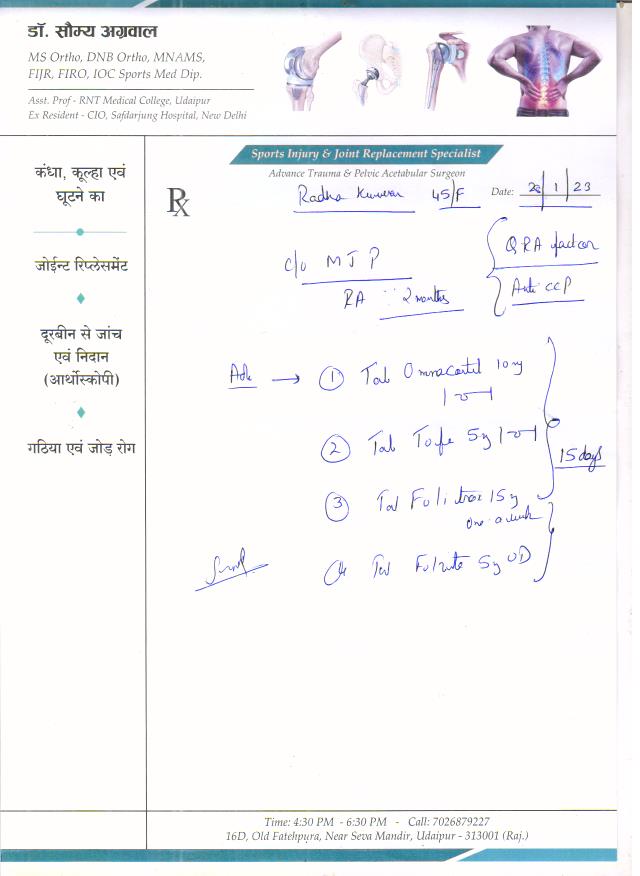 डॉ. सौम्य अग्रवाल
MS Ortho, DNB Ortho, MNAMS,
FIJR, FIRO, IOC Sports Med Dip.
Asst. Prof - RNT Medical College, Udaipur
Ex Resident - CIO, Safdarjung Hospital, New Delhi
कंधा, कूल्हा एवं
घूटने का
जोईन्ट रिप्लेसमेंट
दूरबीन से जांच
एवं निदान
(आर्थोस्कोपी)
गठिया एवं जोड़ रोग
Sports Injury & Joint Replacement Specialist
Advance Trauma & Pelvic Acetabular Surgeon
Rx
Radha 45/F Date: 1/23
c/o MJP
RA 2 months
RA factor
Anti CCP
① Tab 10 mg
② Tab 5
15 days
③ Tab 15
Tab 5 OD
Time: 4:30 PM - 6:30 PM - Call: 7026879227
16D, Old Fatehpura, Near Seva Mandir, Udaipur - 313001 (Raj.)